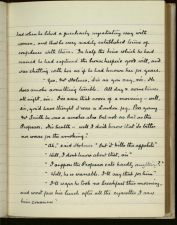 had when he liked a peculiarly ingratiating way with
women, and that he very readily established terms of
confidence with them. In half the time which he had
named he had captured the housekeeper's good will, and
was chatting with her as if he had known her for years.
"Yes, Mr Holmes, it is as you say, sir. He
does smoke something terrible. All day & sometimes
all night, sir. I've seen that room of a morning – well,
sir, you'd have thought it was a London fog. Poor young
Mr Smith he was a smoker also but not as bad as the
Professor. His health – well I don't know that he's better
nor worse for the smoking"
"Ah," said Holmes "but it kills the appetite"
"Well, I don't know about that, sir"
"I suppose the Professor eats hardly anything?"
"Well, he is variable. I'll say that for him"
"I'll wager he took no breakfast this morning,
and won't face his lunch after all the cigarettes I saw
him consume"